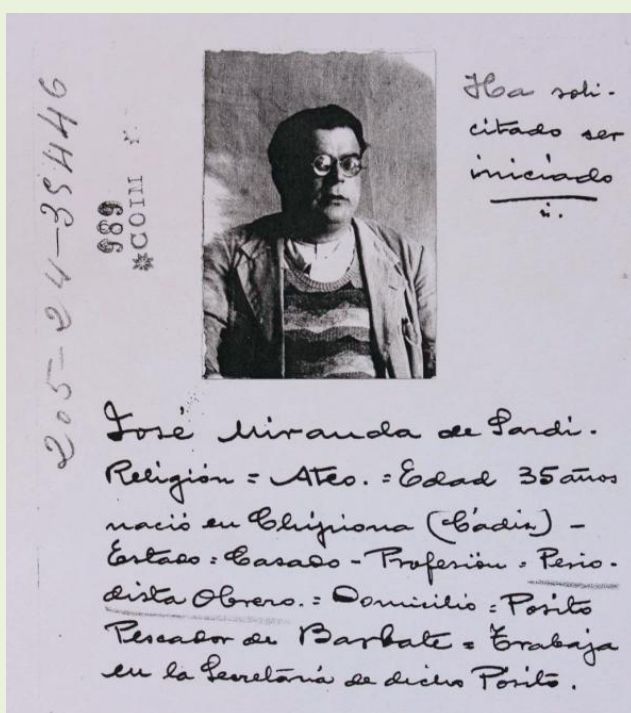 Ha soli-
citado ser
iniciado
205-24-35446
989
*COIM
José Miranda de Sardi.
Religión = Ateo. = Edad 35 años
nació en Chipiona (Cádiz) -
Estado = Casado - Profesión = Perio-
dista Obrero. = Domicilio = Posito
Pescador de Barbate = Trabaja
en la Secretaría de dicho Pósito.